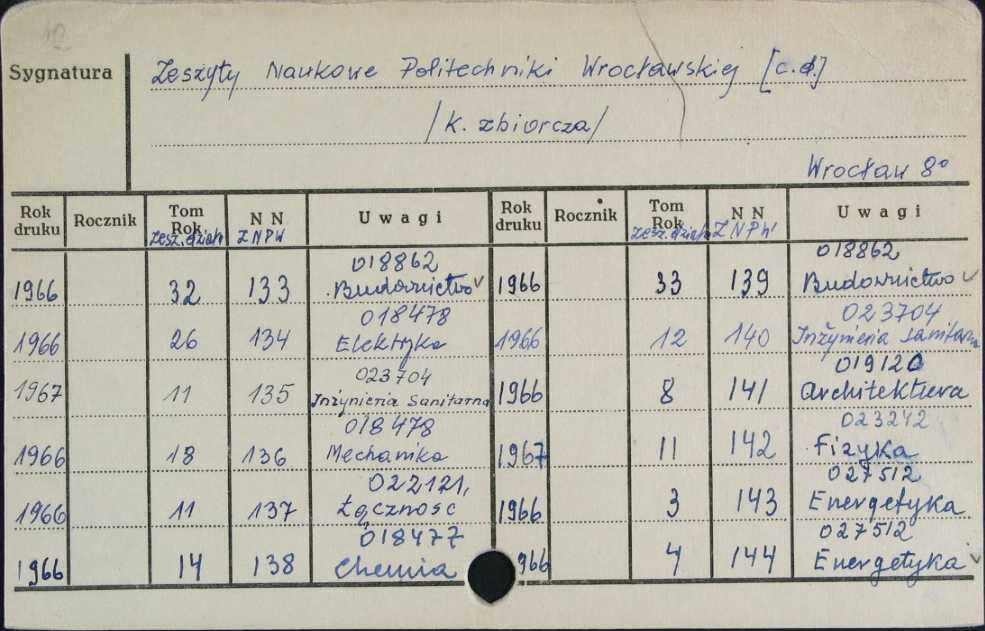 12
Sygnatura
Zeszyty Naukowe Politechniki Wrocławskiej [c.d.]
/k. zbiorcza/
Wrocław 8°
Rok druku Rocznik Tom Rok Zesz. działu N N ZNPW Uwagi Rok druku Rocznik Tom Rok Zesz. działu N N ZNPW Uwagi
018862 018862
1966 32 133 Budownictwo ✓ 1966 33 139 Budownictwo ✓
018478 023704
1966 26 134 Elektryka 1966 12 140 Inżynieria Sanitarna
023704 019120
1967 11 135 Inżynieria Sanitarna 1966 8 141 Architektura
018478 023242
1966 18 136 Mechanika 1967 11 142 Fizyka
022121, 027512
1966 11 137 Łączność 1966 3 143 Energetyka
018477 027512
1966 14 138 Chemia 966 4 144 Energetyka ✓